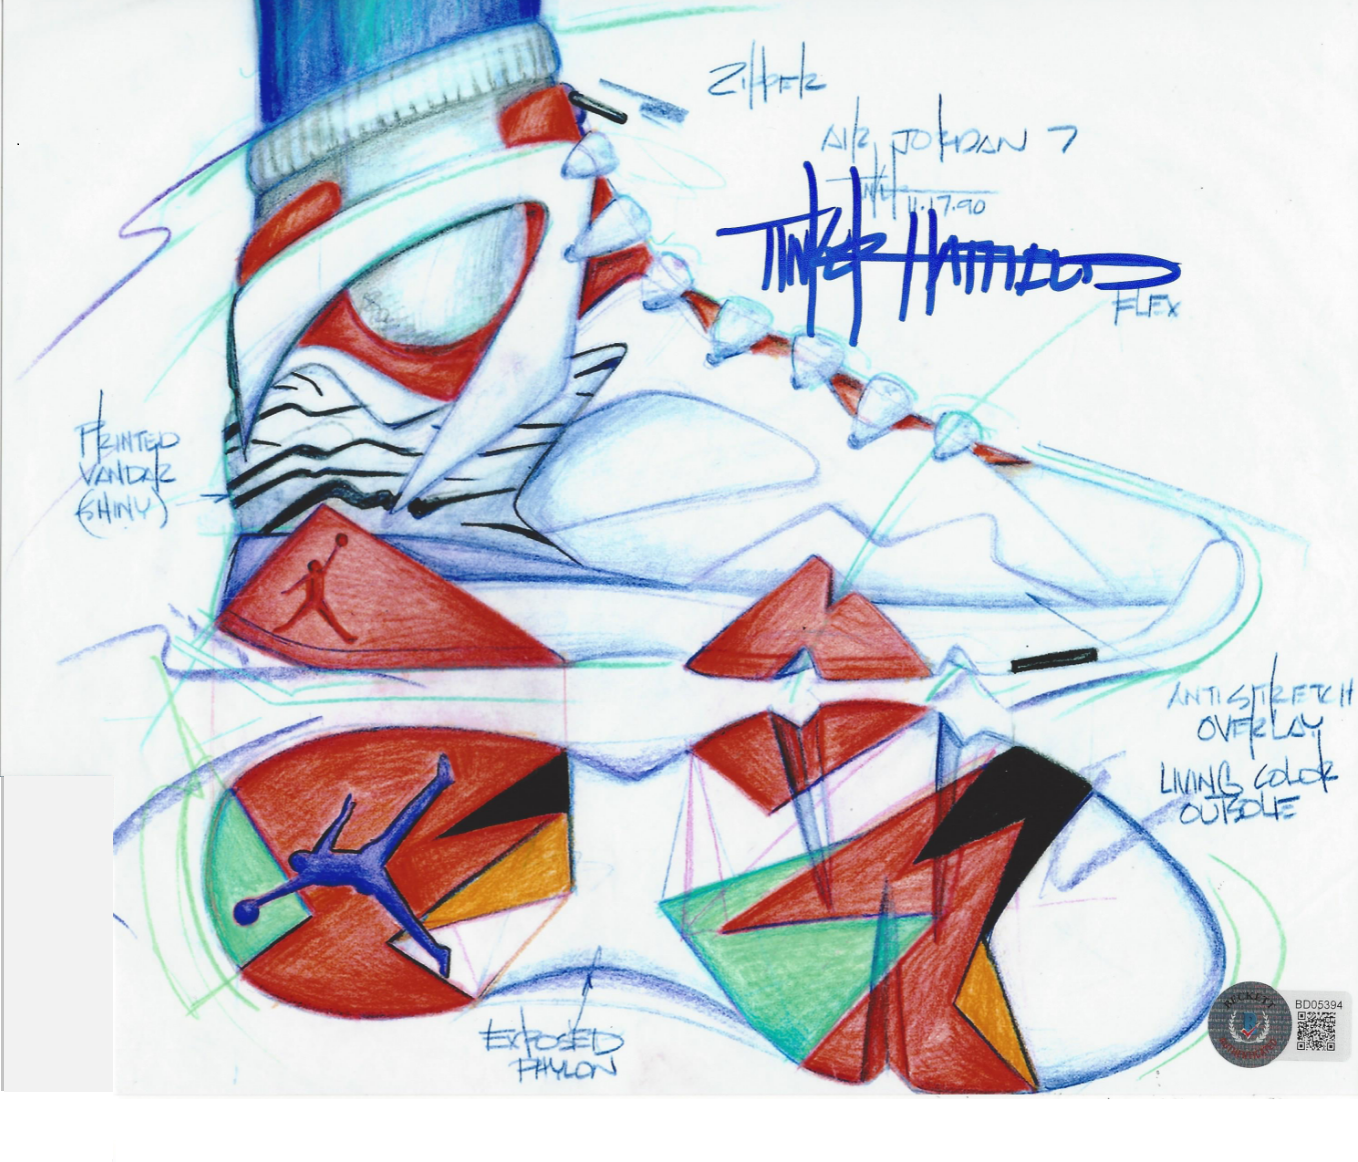 ZIPPER
AIR JORDAN 7
TINKER
11·17·90
TINKER HATFIELD
FLEX
PRINTED
VANDAR
(SHINY)
ANTI STRETCH
OVERLAY
LIVING COLOR
OUTSOLE
EXPOSED
PHYLON
BECKETT
BD05394